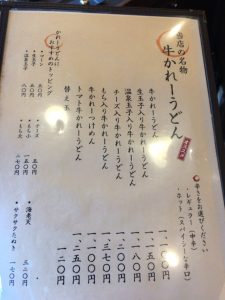 当店の名物
牛かれーうどん
辛さをお選びください
・レギュラー（中辛）
・ホット（スパイシーな辛口）
牛かれーうどん
生玉子入り牛かれーうどん
温泉玉子入り牛かれーうどん
チーズ入り牛かれーうどん
もち入り牛かれーうどん
牛かれーつけめん
トマト牛かれーうどん
替え玉
一、一五〇円
一、一八〇円
一、二〇〇円
一、三七〇円
一、一〇〇円
一、二五〇円
一二〇円
かれーうどんに
おすすめのトッピング
・生玉子
五〇円
・温泉玉子
八〇円
・チーズ
一五〇円
・もち小
・もち大
・海老天
三二〇円
・サクサクたぬき
一七〇円